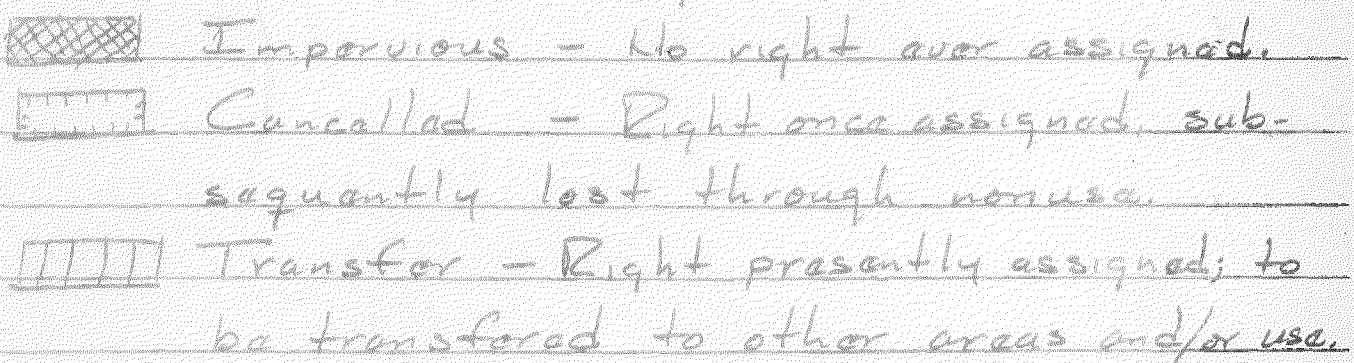 Impervious - No right ever assigned.
Cancelled - Right once assigned, sub-
sequently lost through nonuse.
Transfer - Right presently assigned; to
be transfered to other areas and/or use.